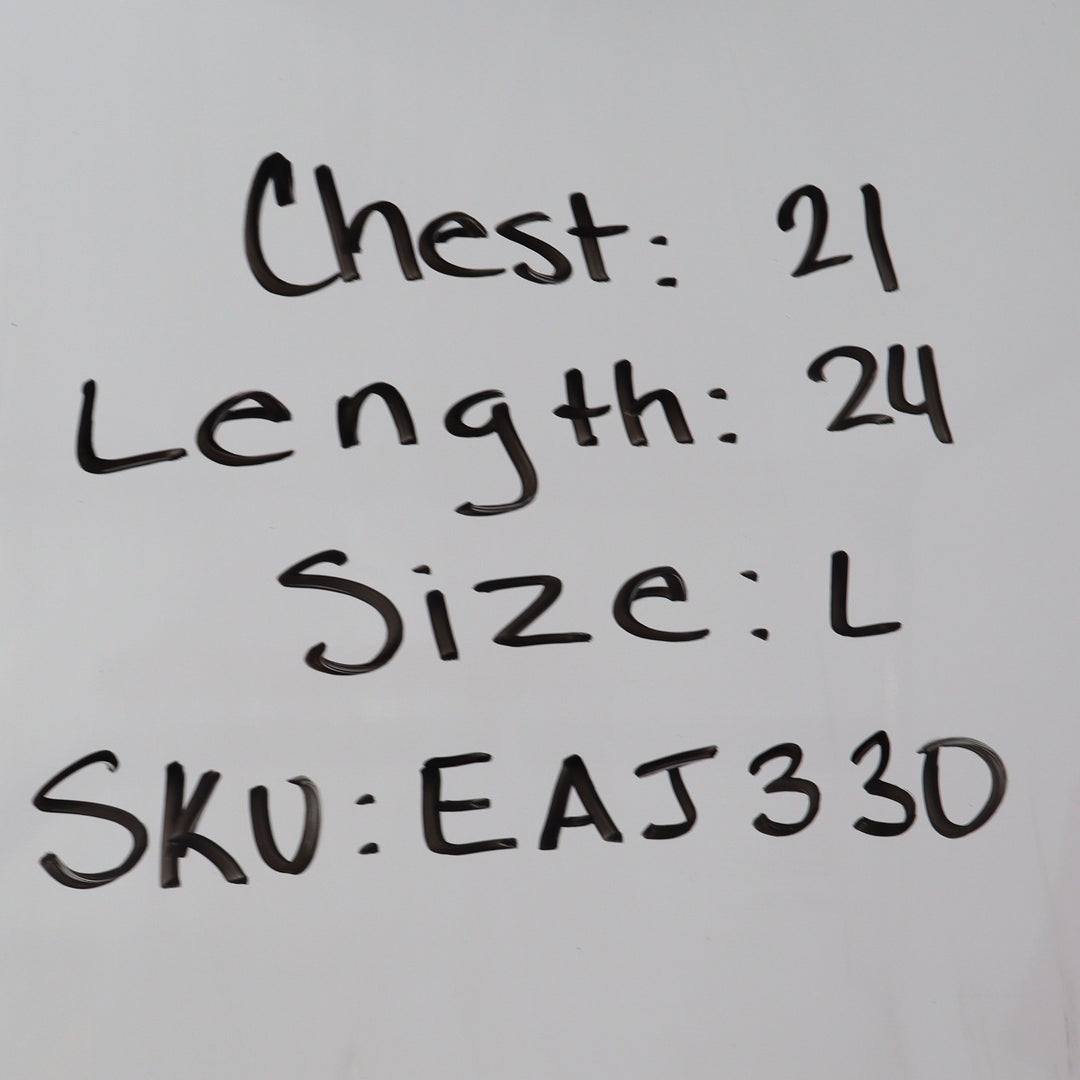 Chest: 21
Length: 24
Size: L
SKU: EAJ330